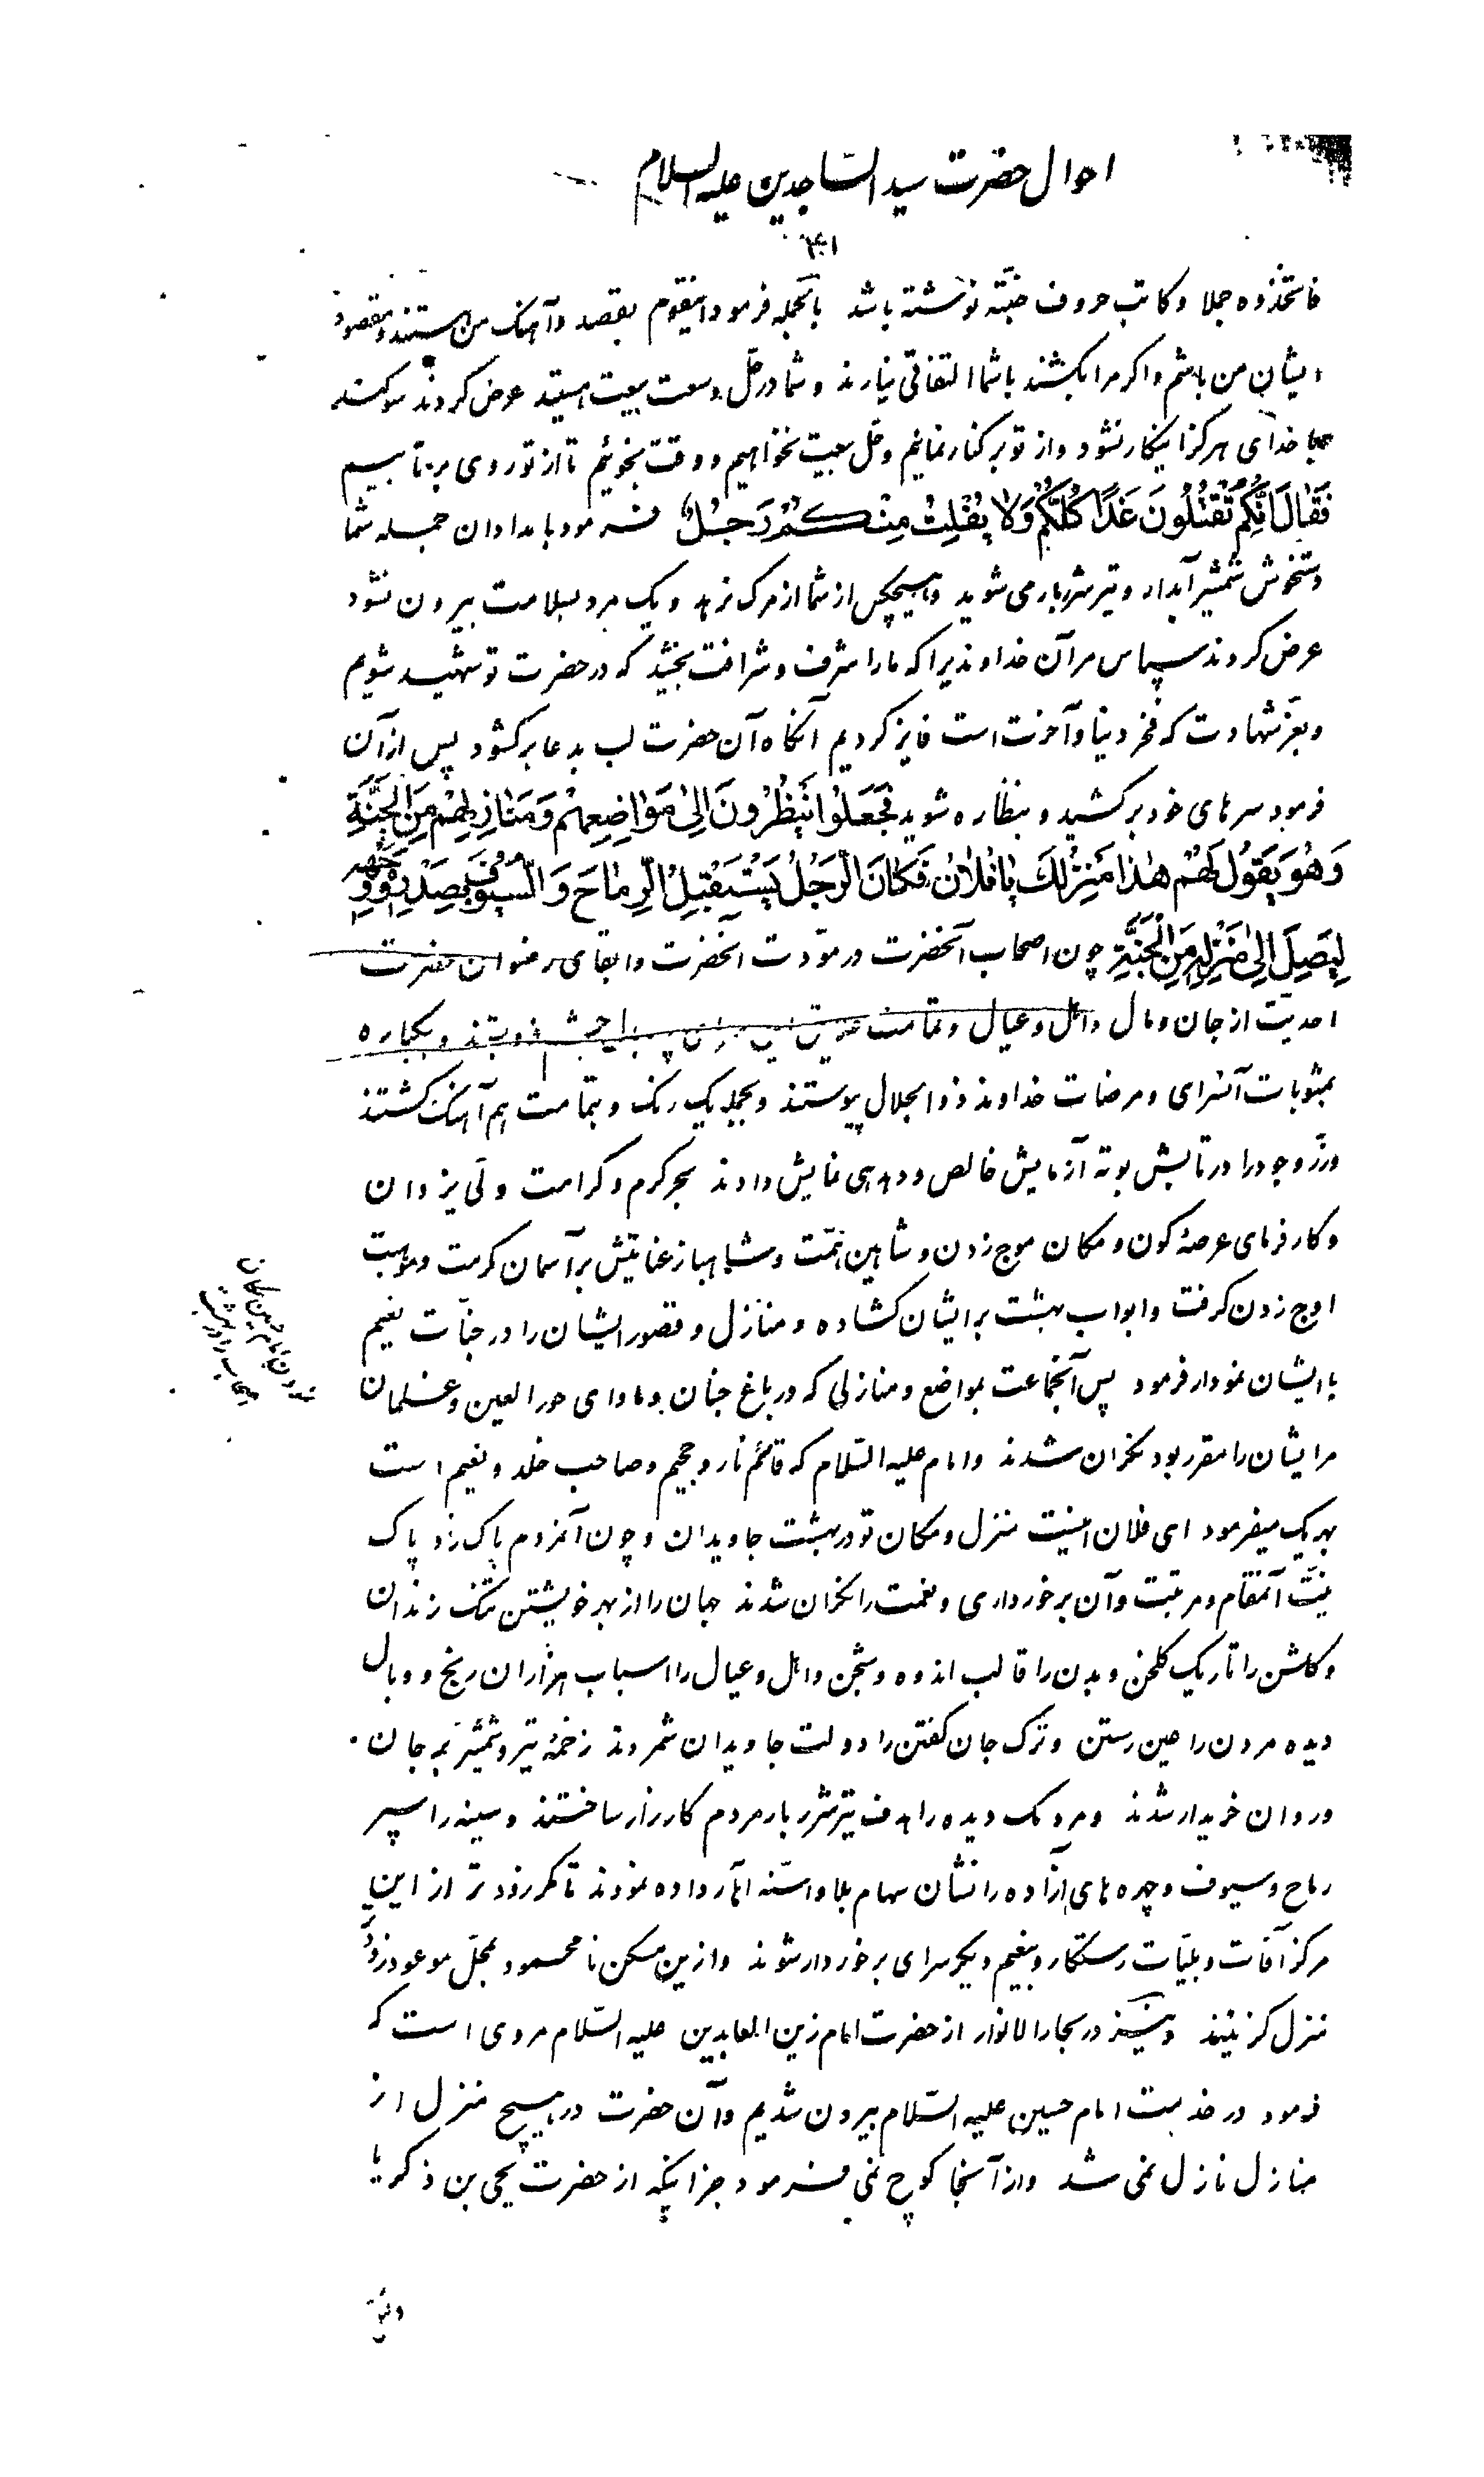 احوال حضرت سید الساجدین علیه السلام
فاتخذوه جملا و کاتب حروف جنّته نوشته باشد بالجمله فرمود اینقوم بقصد و آهنک من هستند و مقصود
ایشان من باشم و اکر مرا بکشند باشما التفاتی نیارند و شما در حلّ و سعت بیعت هستید عرض کردند سوکند
با خدای هرکز اینکار نشود و از تو بر کنار نمانیم و حل بیعت نخواهیم و وقت نجوئیم تا از تو روی برتابیم
فَقٰالَ اِنَّکُمْ تُقْتَلُونَ غَدًا کُلُّکُمْ وَلٰا یُفْلِتُ مِنْکُمْ رَجُلٌ فرمود بامدادان جمله شما
دستخوش شمشیر آبدار و تیر شرربار می شوید و هیچکس از شما از مرک نرهد و یک مرد بسلامت بیرون نشود
عرض کردند سپاس مر آن خداوندیرا که ما را شرف و شرافت بخشید که در حضرت تو شهید شویم
و بعز شهادت که فخر دنیا و آخرت است فایز کردیم آنکاه آن حضرت لب بدعا برکشود پس از آن
فرمود سرهای خود برکشید و بنظاره شوید فَجَعَلُوا یَنْظُرُونَ اِلیٰ مَوٰاضِعِهِمْ وَ مَنٰازِلِهِمْ مِنَ الْجَنَّةِ
وَ هُوَ یَقُولُ لَهُمْ هٰذا مَنْزِلُکَ یٰا فُلٰانُ فَکٰانَ الرَّجُلُ یَسْتَقْبِلُ الرِّمٰاحَ وَ السُّیُوفَ بِصَدْرِهِ وَ وَجْهِهِ
لِیَصِلَ اِلیٰ مَنْزِلِهِ مِنَ الْجَنَّةِ چون اصحاب آنحضرت در مودّت آنحضرت و ابتغای رضوان حضرت
احدیّت از جان و مال و اهل و عیال و تمامت چشم فروبستند و یکباره
بمثوبات آنسرای و مرضات خداوند ذوالجلال پیوستند و بجمله یک رنک و بتمامت هم آهنک کشتند
و زرّ وجود را در تابش بوته آزمایش خالص و ده دهی نمایش دادند بحر کرم و کرامت ولّی یزدان
و کارفرمای عرصهٔ کون و مکان موج زدن و شاهین همّت و شاهباز عنایتش بر آسمان کرمت و موهبت
اوج زدن کرفت و ابواب بهشت بر ایشان کشاده و منازل و قصور ایشان را در جنّات نعیم
با ایشان نمودار فرمود پس آنجماعت بمواضع و منازلی که در باغ جنان و ماوای حور العین و غلمان
مر ایشان را مقرر بود نکران شدند و امام علیه السّلام که قاسم نار و جحیم و صاحب خلد و نعیم است
بهر یک میفرمود ای فلان اینست منزل و مکان تو در بهشت جاویدان و چون آنمردم پاک زاد پاک
نیّت آنمقام و مرتبت و آن برخورداری و نعمت را نکران شدند جهان را از بهر خویشتن تنک زندان
و کلشن را تاریک کلخن و بدن را قالب اندوه و شجن و اهل و عیال را اسباب هزاران رنج و وبال
دیده مردن را عین رستن و ترک جان کفتن را دولت جاویدان شمردند زخمهٔ تیر و شمشیر به جان
و روان خریدار شدند و مردمک دیده را هدف تیر شرر بار مردم کارزار ساختند و سینه را سپر
رماح و سیوف و چهره های آزاده را نشان سهام بلا و اسنّه نمودند تا مکر زودتر از این
مرکز آفات و بلیّات رستکار و بنعیم دیکر سرای برخوردار شوند و ازین مسکن نامحمود بمحلّ موعود
منزل کزینند و نیز در بحار الانوار از حضرت امام زین العابدین علیه السّلام مروی است که
فرمود در خدمت امام حسین علیه السّلام بیرون شدیم و آن حضرت در هیچ منزل از
منازل نازل نمی شد و از آنجا کوچ نمی فرمود جز اینکه از حضرت یحیی بن ذکریا